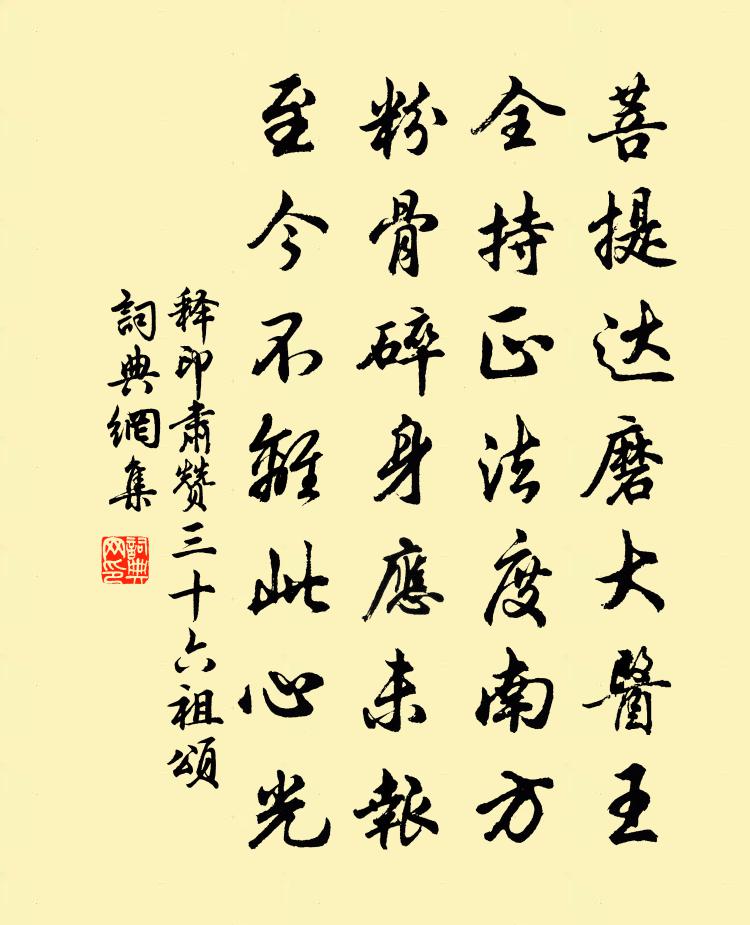 菩提达磨大醫王
全持正法度南方
粉骨碎身應未報
至今不離此心光
释印肃赞三十六祖頌
詞典網集
詞典网印